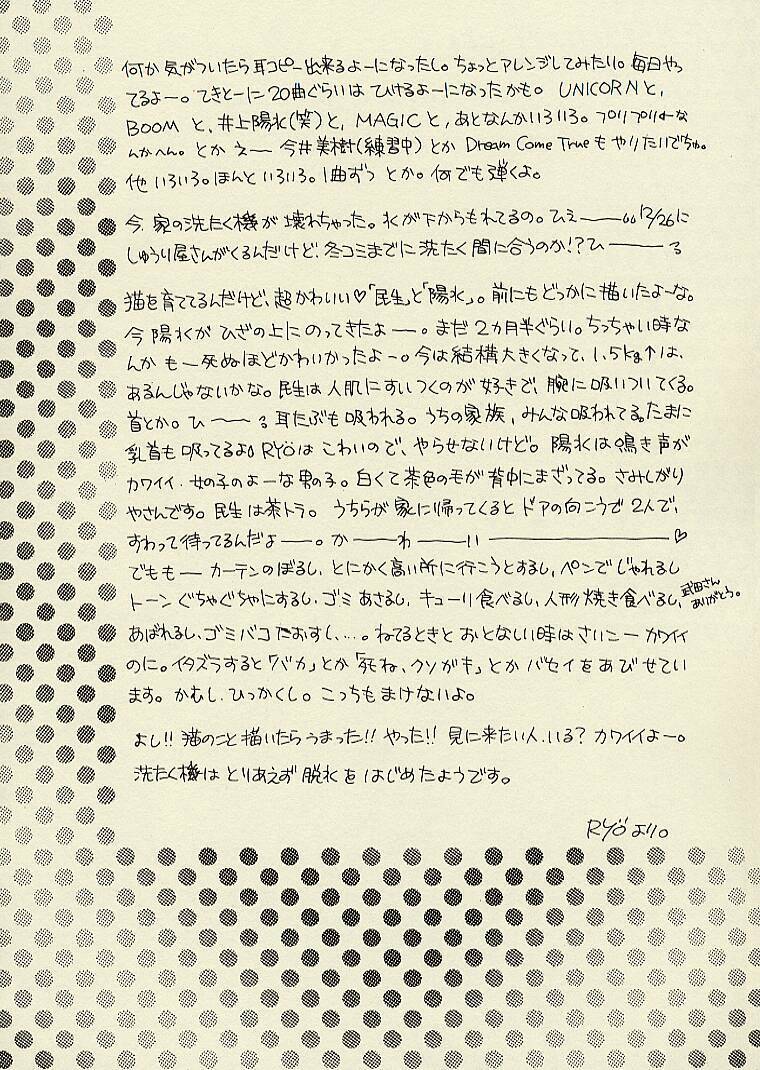 何か気がついたら耳コピー出来るよーになったし。ちょっとアレンジしてみたい。毎日やっ
てるよー。てきとーに20曲ぐらいはひけるよーになったかも。UNICORNと,
BOOMと,井上陽水(笑)と,MAGICと,あとなんかいろいろ。プリプリもーな
んかへん。とかえー 今井美樹(練習中)とかDream Come Trueもやりたいでちゅ。
他いろいろ。ほんといろいろ。1曲ずつとか。何でも弾くよ。
今、家の洗たく機が壊れちゃった。水が下からもれてるの。ひえ――。。12/26に
しゅうり屋さんがくるんだけど、冬コミまでに洗たく間に合うのか!?ひ――る
猫を育ててるんだけど、超かわいい♡「民生」と「陽水」。前にもどっかに描いたよーな。
今陽水がひざの上にのってきたよー。まだ2ヵ月半ぐらい。ちっちゃい時な
んかもー死ぬほどかわいかったよー。今は結構大きくなって、1.5kg↑は、
あるんじゃないかな。民生は人肌にすいつくのが好きで、腕に吸いついてくる。
首とか。ひ〜〜る耳たぶも吸われる。うちの家族,みんな吸われてる。たまに
乳首も吸ってるよ。RYÖはこわいので、やらせないけど。陽水は鳴き声が
カワイイ.女の子のよーな男の子。白くて茶色の毛が背中にまざってる。さみしがり
やさんです。民生は茶トラ。うちらが家に帰ってくるとドアの向こうで2人で、
すわって待ってるんだよ――。か――わ――いい――――♡
でもも―カーテンのぼるし、とにかく高い所に行こうとするし,ペンでじゃれるし
トーンぐちゃぐちゃにするし.ゴミあさるし,キューリ食べるし,人形焼き食べるし,武田さんありがとう。
あばれるし,ゴミバコたおすし、…。ねてるときとおとなしい時はさいこーカワイイ
のに。イタズラすると「バカ」とか「死ね、クソがキ」とかバセイをあびせてい
ます。かむし.ひっかくし。こっちもまけないよ。
よし!!猫のこと描いたらうまった!!やった!!見に来たい人、いる?カワイイよー。
洗たく機はとりあえず脱水をはじめたようです。
RYÖより。